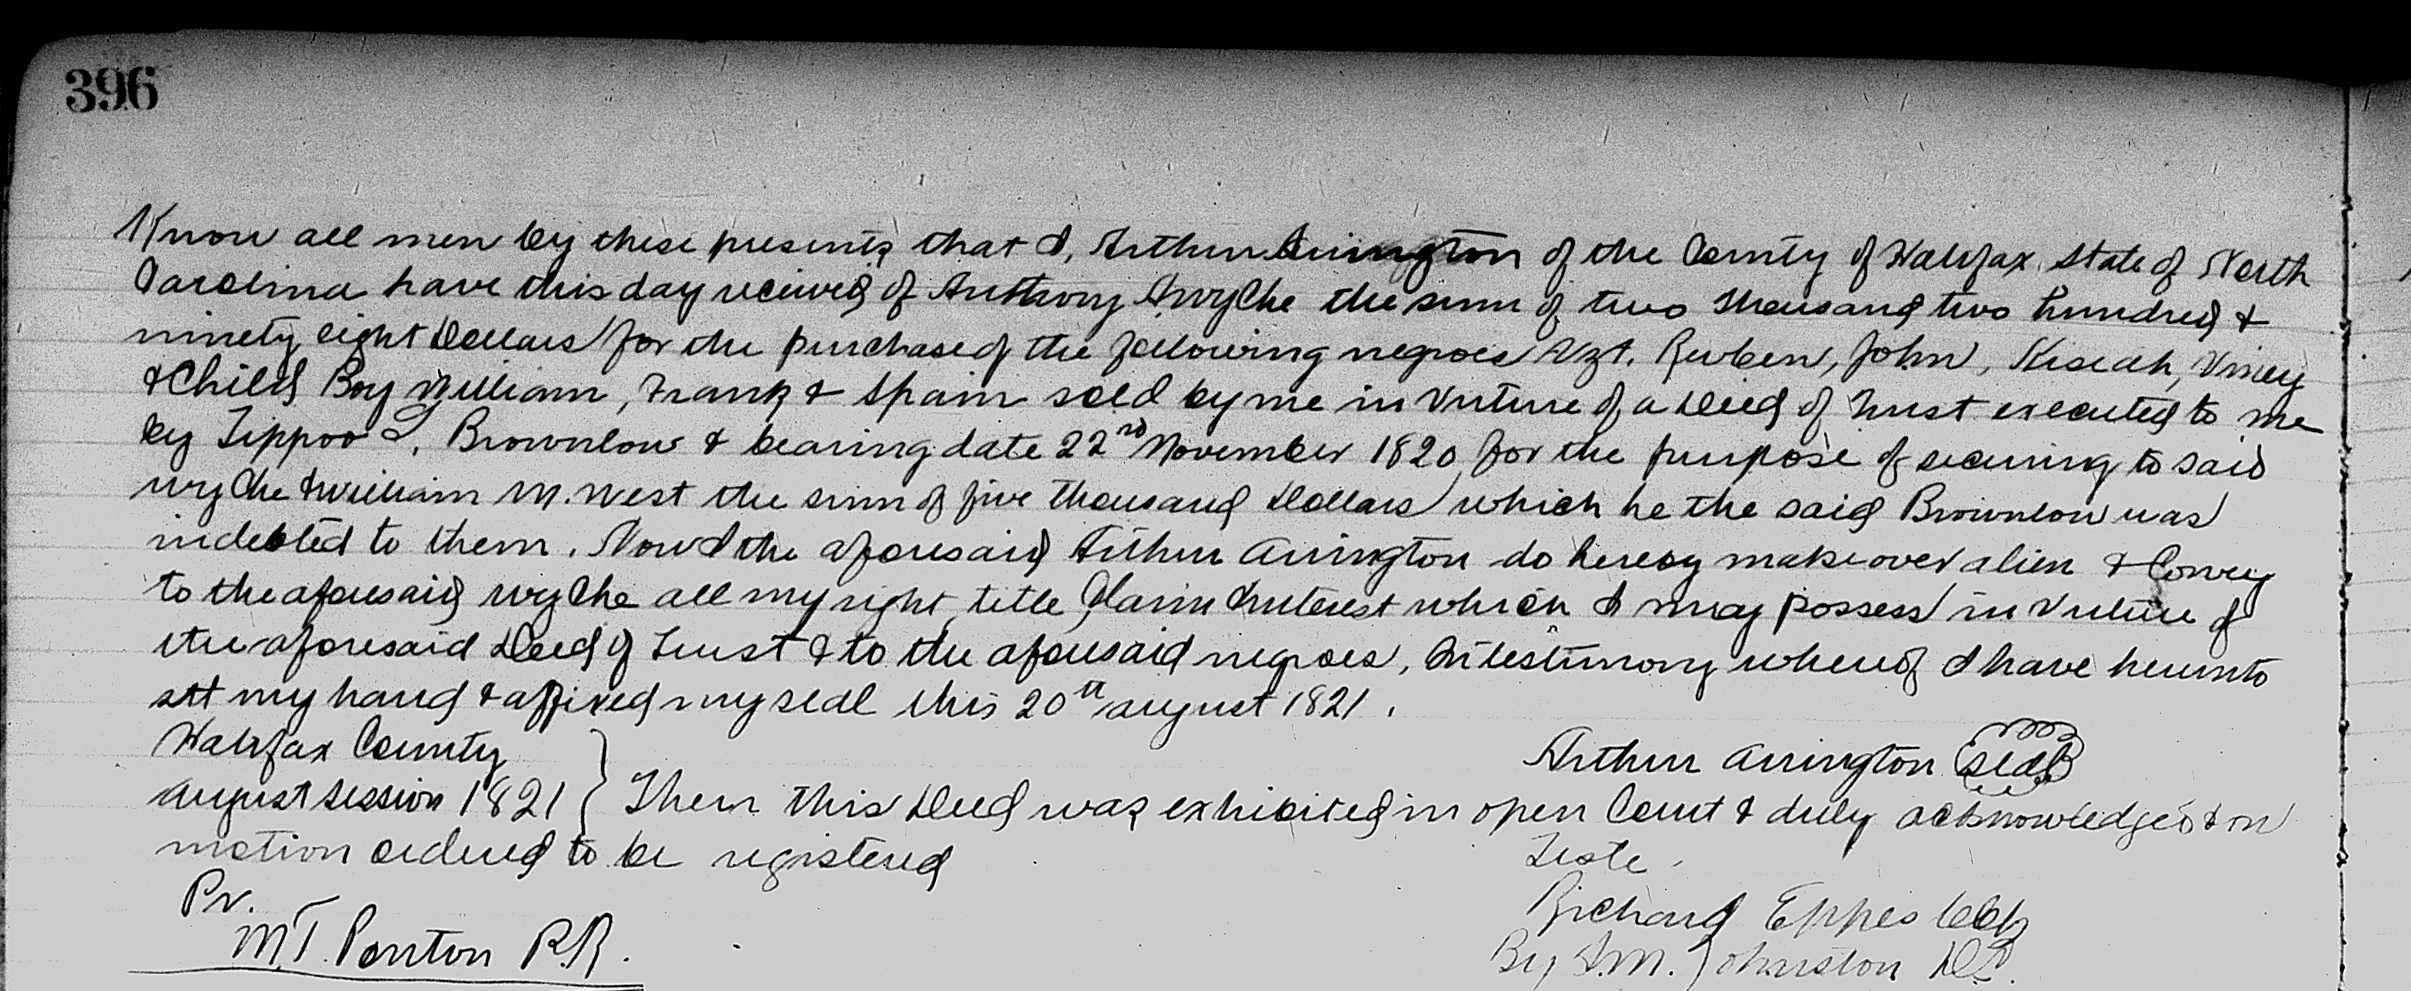 396
Know all men by these presents that I, Arthur Arrington of the County of Halifax, State of North
Carolina have this day received of Anthony A Wyche the sum of two thousand two hundred &
ninety eight Dollars for the purchase of the following negroes Vzt. Reuben, John, Kiseah, Viney
& Child Boy William, Frank & Spain sold by me in Virture of a Deed of Trust executed to me
by Tippoo S. Brownlow & bearing date 22nd November 1820 for the purpose of securing to said
wyche & William M. West the sum of five thousand Dollars which he the said Brownlow was
indebted to them. Now I the aforesaid Arthur Arrington do hereby make over alien & Convey
to the aforesaid wyche all my right, title, Claim & Interest which I may possess in Virture of
the aforesaid Deed of Trust & to the aforesaid negroes, In testimony whereof I have hereunto
set my hand & affixed my seal this 20th august 1821.
Arthur Arrington (seal)
Halifax County
August Session 1821 } Then this Deed was exhibited in open Court & duly acknowledged & on
motion ordered to be registered
Teste
Pr.
Richard Eppes Clk
M.T. Ponton R.R.
By J.M. Johnston D.C.